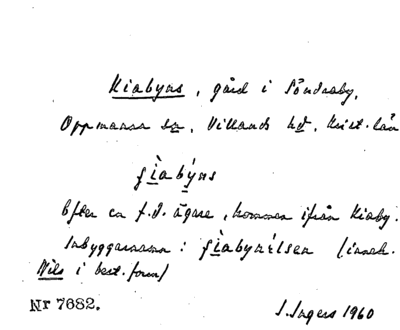 Kiabyns, gård i Söndraby,
Oppmanna sn, Villands hd, Krist. län
ʃìabýns
Efter en f.d. ägare, kommen ifrån Kiaby.
Inbyggarnamn: ʃìabynìlsen (inneh.
Nils i best. form)
Nr 7682.
I. Ingers 1960